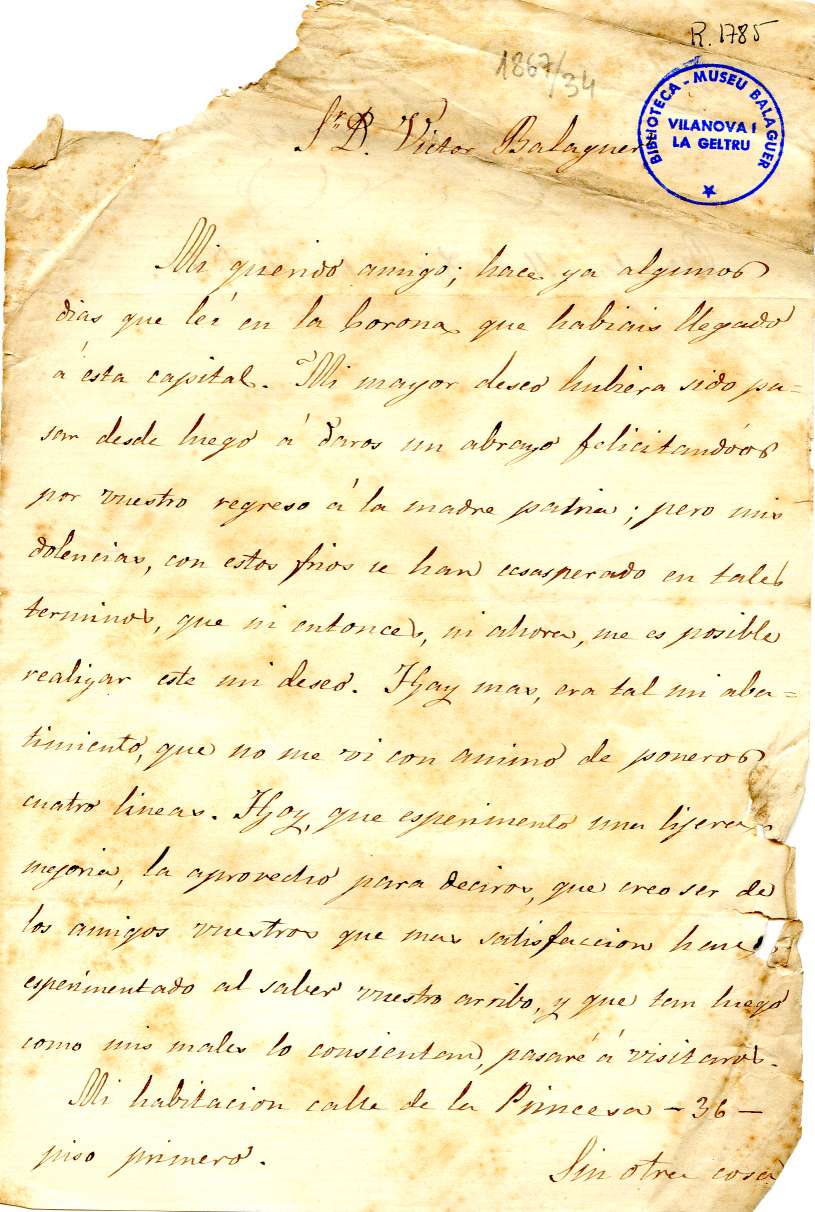 R. 1785
1867/34
BIBLIOTECA-MUSEU BALAGUER
VILANOVA I
LA GELTRU
Sr. D. Victor Balaguer
Mi querido amigo; hace ya algunos
dias que leí en la Corona, que habiais llegado
á esta capital. Mi mayor deseo hubiera sido pa=
sar desde luego á daros un abrazo felicitandóos
por vuestro regreso á la madre patria; pero mis
dolencias, con estos frios se han ecsasperado en tales
terminos, que ni entonces, ni ahora, me es posible
realizar este mi deseo. Hay mas, era tal mi aba=
timiento, que no me vi con animo de poneros
cuatro lineas. Hoy, que esperimento una lijera
mejoria, la aprovecho para deciros, que creo ser de
los amigos vuestros que mas satisfaccion han
esperimentado al saber vuestro arribo, y que tan luego
como mis males lo consientan, pasaré á visitaros.
Mi habitacion calle de la Princesa - 36 -
piso primero.
Sin otra cosa